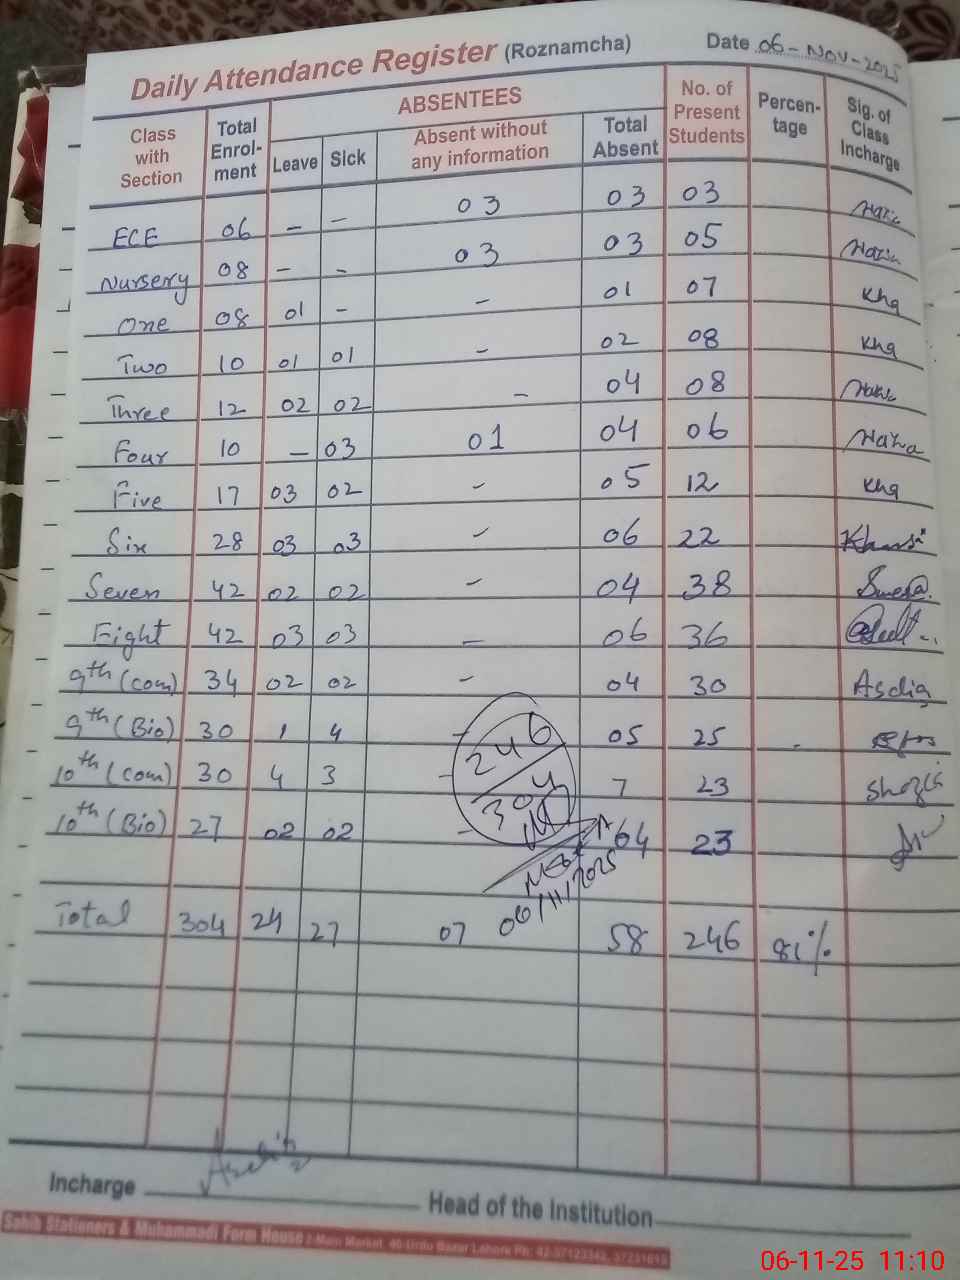 Daily Attendance Register (Roznamcha) Date 06-Nov-2025
Class with Section Total Enrol-ment ABSENTEES Leave Sick Absent without any information Total Absent No. of Present Students Percen-tage Sig. of Class Incharge
ECE 06 - - 03 03 03
Nursery 08 - - 03 03 05
One 08 01 - - 01 07 Kha
Two 10 01 01 - 02 08 Kha
Three 12 02 02 - 04 08
Four 10 - 03 01 04 06
Five 17 03 02 - 05 12 Kha
Six 28 03 03 - 06 22
Seven 42 02 02 - 04 38
Eight 42 03 03 - 06 36
9th (com) 34 02 02 - 04 30
9th (Bio) 30 1 4 - 05 25
10th (com) 30 4 3 - 7 23
10th (Bio) 27 02 02 - 04 23
246
304
06/11/2025
Total 304 24 27 07 58 246 81%
Incharge Head of the Institution
Sahib Stationers & Muhammadi Form House 2-Main Market 40-Urdu Bazar Lahore Ph:
06-11-25 11:10